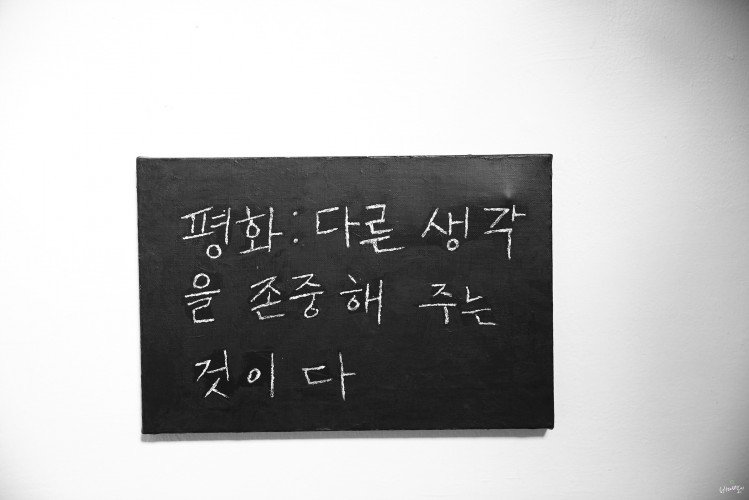 평화: 다른 생각
을 존중해 주는
것이다